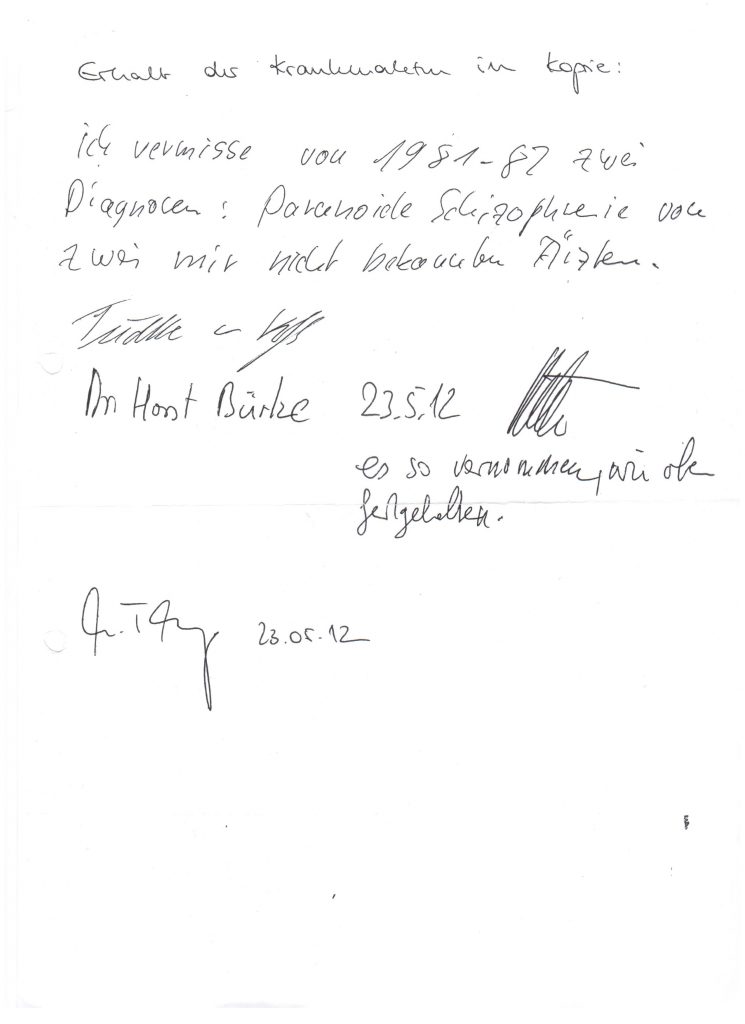 Erhalt der Krankenakten in Kopie:
ich vermisse von 1981-82 zwei
Diagnosen: Paranoide Schizophrenie von
zwei mir nicht bekannten Ärzten.
Dr Horst Bürke 23.5.12
es so vernommen, wie oben
festgehalten.
23.05.12